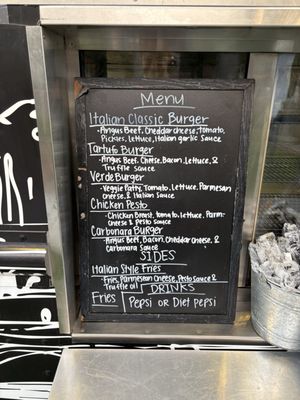 Menu
Italian Classic Burger
-Angus Beef, Cheddar cheese, tomato,
Pickles, Lettuce, Italian garlic sauce
Tartufo Burger
-Angus Beef, Cheese, Bacon, Lettuce, &
Truffle sauce
Verde Burger
-Veggie Patty, Tomato, Lettuce, Parmesan
cheese, & Italian Sauce
Chicken Pesto
-Chicken Breast, tomato, lettuce, Parm-
cheese & pesto sauce
Carbonara Burger
-Angus Beef, Bacon, Cheddar cheese, &
Carbonara Sauce
SIDES
Italian Style Fries
-Fries, Parmesan Cheese, Pesto Sauce &
Truffle oil
DRINKS
Fries
Pepsi or Diet pepsi